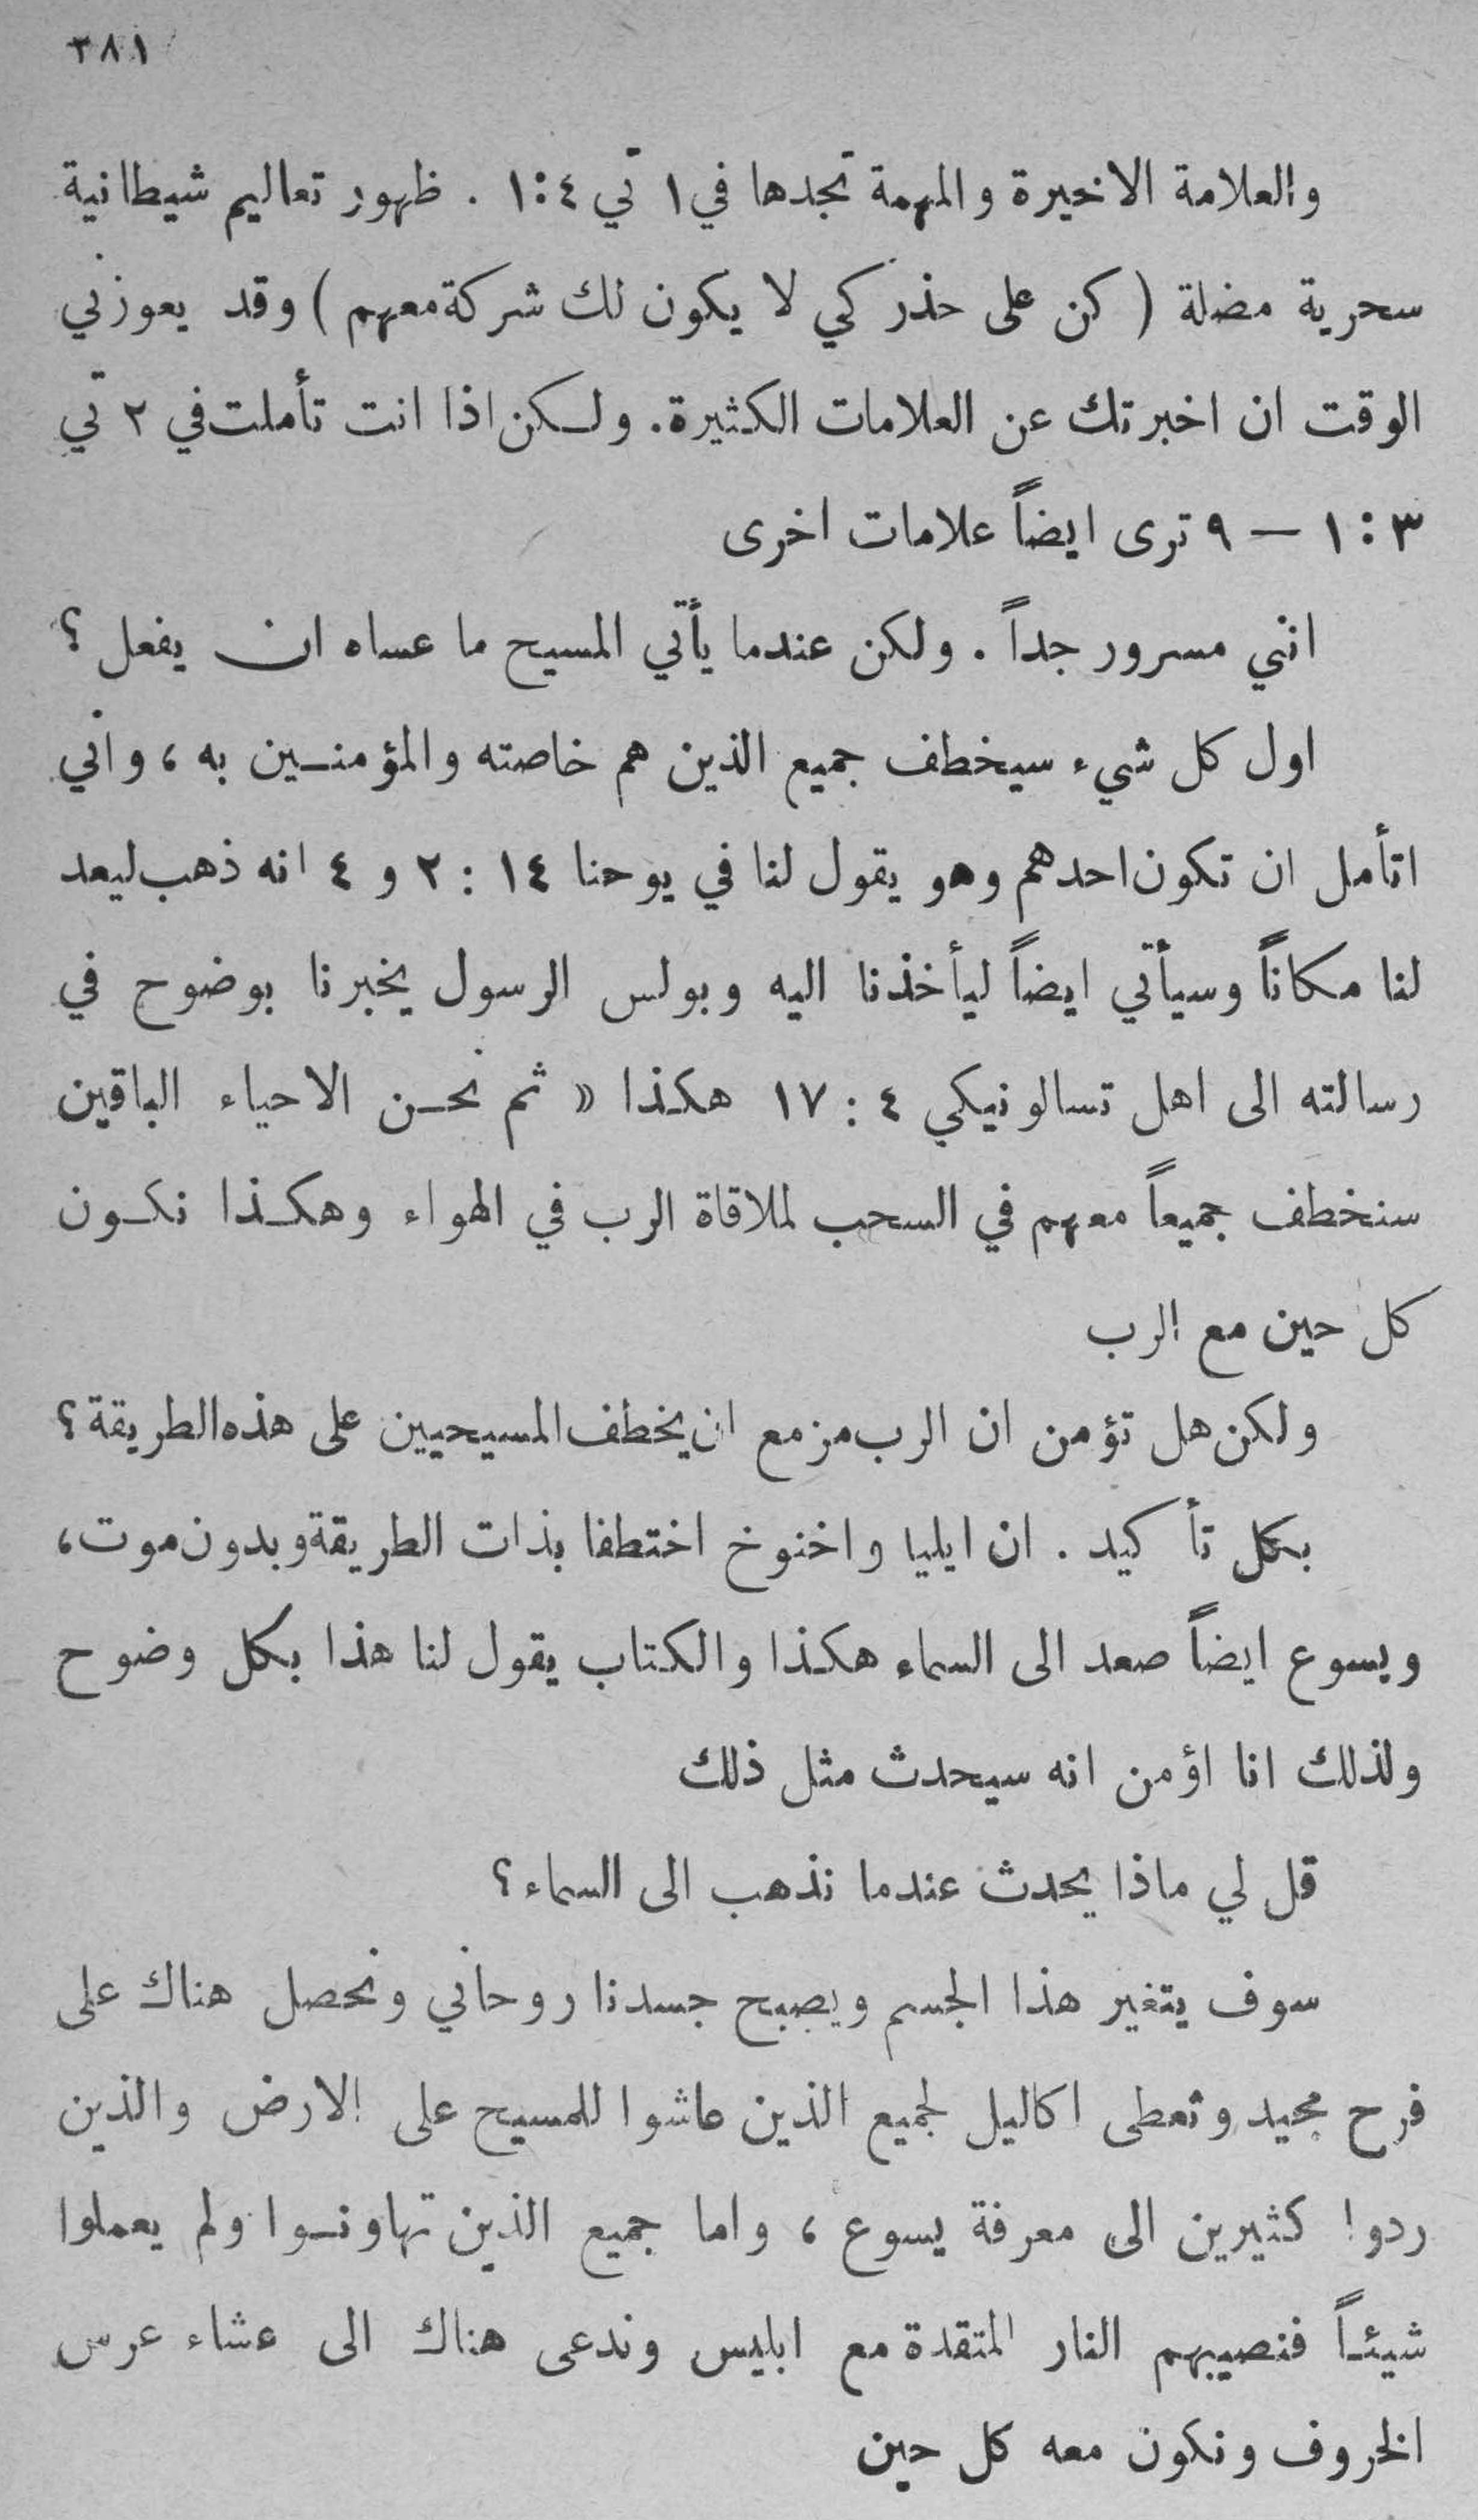 ٣٨١
والعلامة الاخيرة والمهمة تجدها في ١ تي ٤:١ . ظهور تعاليم شيطانية
سحرية مضلة ( كن على حذر كي لا يكون لك شركة معهم ) وقد يعوزني
الوقت ان اخبرتك عن العلامات الكثيرة. ولكن اذا انت تأملت في ٢ تي
٣ : ١ — ٩ ترى ايضاً علامات اخرى
انني مسرور جداً . ولكن عندما يأتي المسيح ما عساه ان يفعل ؟
اول كل شيء سيخطف جميع الذين هم خاصته والمؤمنين به ، واني
اتأمل ان تكون احدهم وهو يقول لنا في يوحنا ١٤ : ٢ و ٤ انه ذهب ليعد
لنا مكاناً وسيأتي ايضاً ليأخذنا اليه وبولس الرسول يخبرنا بوضوح في
رسالته الى اهل تسالونيكي ٤ : ١٧ هكذا « ثم نحن الاحياء الباقين
سنخطف جميعاً معهم في السحب لملاقاة الرب في الهواء وهكذا نكون
كل حين مع الرب
ولكن هل تؤمن ان الرب مزمع ان يخطف المسيحيين على هذه الطريقة ؟
بكل تأكيد . ان ايليا واخنوخ اختطفا بذات الطريقة وبدون موت ،
ويسوع ايضاً صعد الى السماء هكذا والكتاب يقول لنا هذا بكل وضوح
ولذلك انا اؤمن انه سيحدث مثل ذلك
قل لي ماذا يحدث عندما نذهب الى السماء ؟
سوف يتغير هذا الجسم ويصبح جسدنا روحاني ونحصل هناك على
فرح مجيد وتعطى اكاليل لجميع الذين عاشوا للمسيح على الارض والذين
ردوا كثيرين الى معرفة يسوع ، واما جميع الذين تهاونوا ولم يعملوا
شيئاً فنصيبهم النار المتقدة مع ابليس وندعى هناك الى عشاء عرس
الخروف ونكون معه كل حين